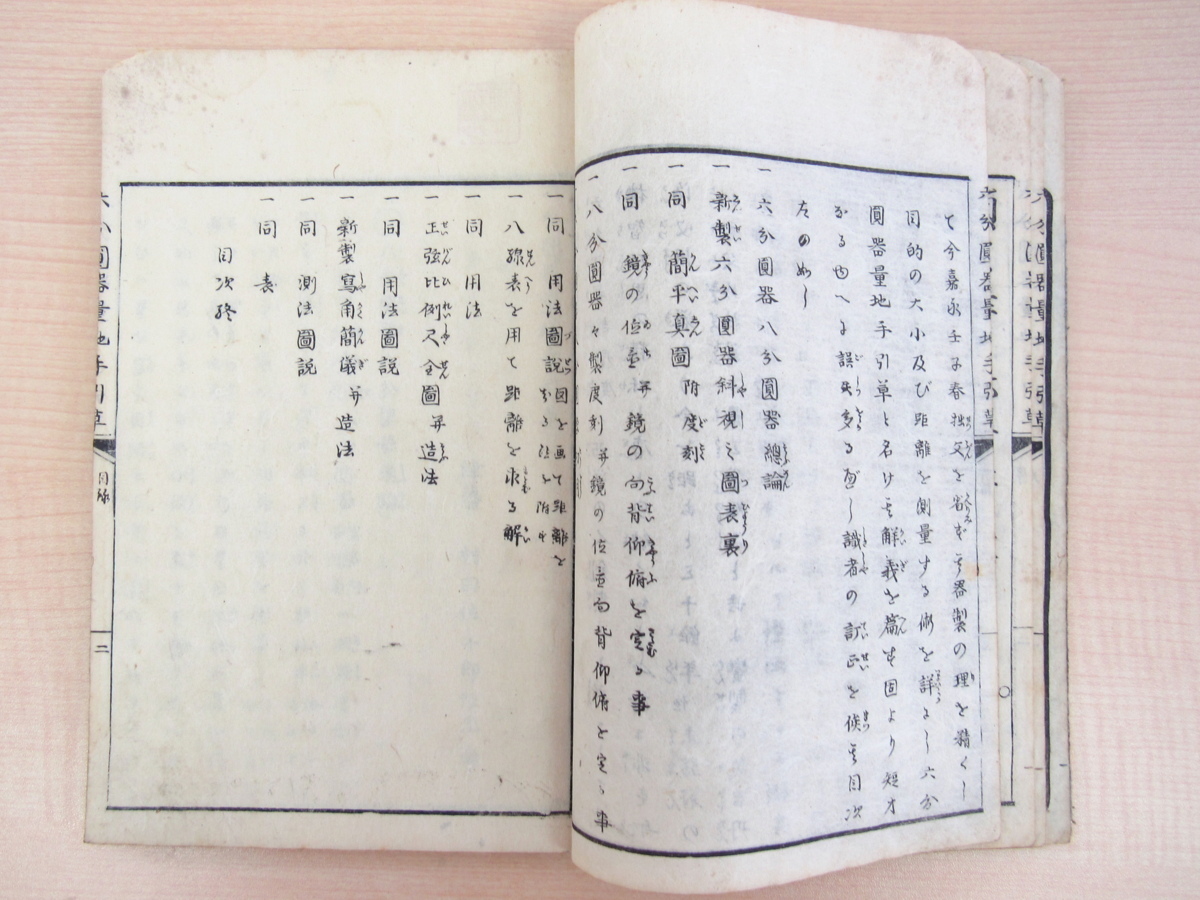 て今嘉永壬子春拙父を省きて器製の理を精くし
目的の大小及び距離を測量する術を詳よし六分
圓器量地手引草と名け其解義を篇す固より短才
なる也へよ誤失多るべし識者の訂正を俟其目次
左のめし
一 六分圓器八分圓器總論
一 新製六分圓器斜視之圖表裏
一 同 簡平真圖 附度刻
一 同 鏡の位置并鏡の向背仰俯を定る事
一 八分圓器々製度刻并鏡の位置向背仰俯を定る事
一 同 用法圖説 图を画て距離を
一 八線表を用て距離を求る解
一 同 用法
一 正弦比例尺全圖并造法
一 同 用法圖説
一 新製寫角簡儀并造法
一 同 測法圖説
一 同 表
目次終
六分圓器量地手引草
目錄
二